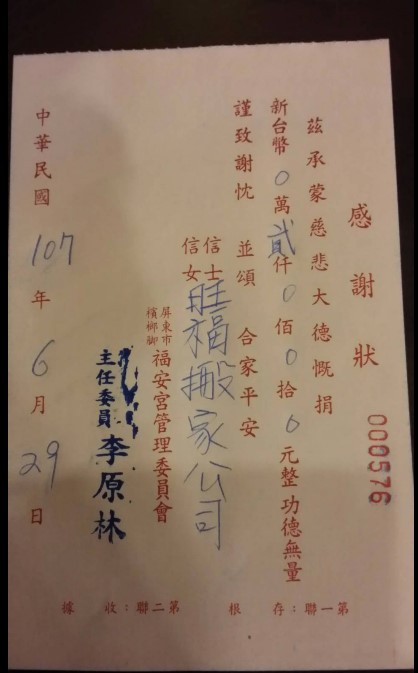 感謝狀
000576
茲承蒙慈悲大德慨捐
新台幣0萬貳仟0佰0拾0元整功德無量
謹致謝忱 並頌 合家平安
信士
信女
旺福搬家公司
屏東市
檳榔腳
福安宮管理委員會
主任委員 李原林
中華民國107年6月29日
第一聯：存根
第二聯：收據